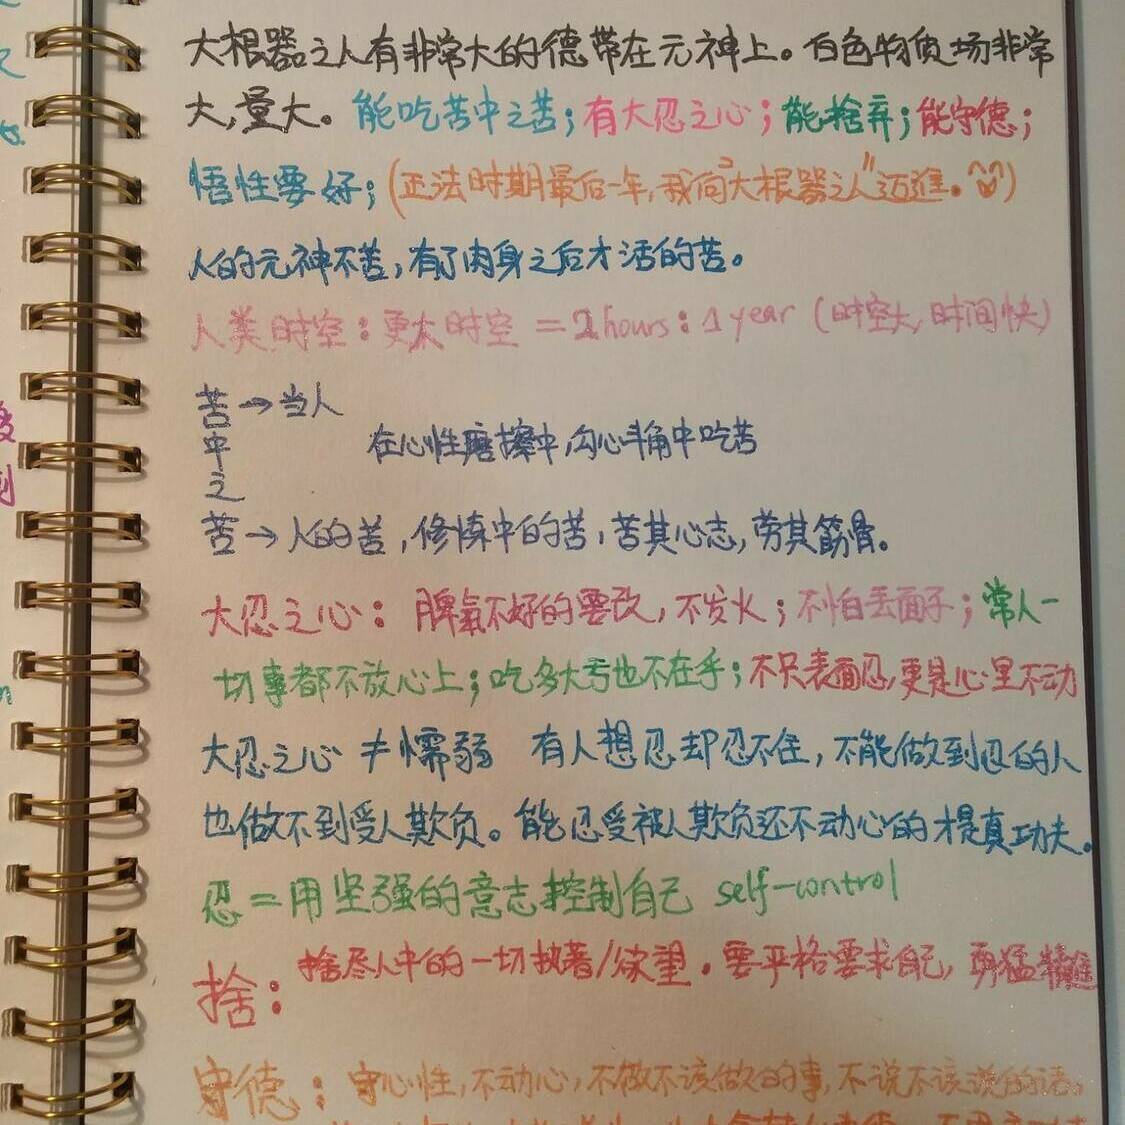 大根器之人有非常大的德带在元神上。白色物质场非常
大,量大。能吃苦中之苦;有大忍之心;能捨弃;能守德;
悟性要好;(正法时期最后一年,我向"大根器之人"迈進。)
人的元神不苦,有了肉身之后才活的苦。
人类时空:更大时空 = 2 hours: 1 year (时空大,时间快)
苦→当人
中
之
在心性磨擦中,勾心斗角中吃苦
苦→人的苦,修炼中的苦,苦其心志,劳其筋骨。
大忍之心:脾氣不好的要改,不发火;不怕丢面子;常人一
切事都不放心上;吃多大亏也不在乎;不只表面忍,更是心里不动
大忍之心 ≠ 懦弱 有人想忍却忍不住,不能做到忍的人
也做不到受人欺负。能忍受被人欺负还不动心的才是真功夫。
忍 = 用坚强的意志控制自己 self-control
捨:捨尽人中的一切执著/欲望。要严格要求自己,勇猛精進
守德:守心性,不动心,不做不该做的事,不说不该说的话。